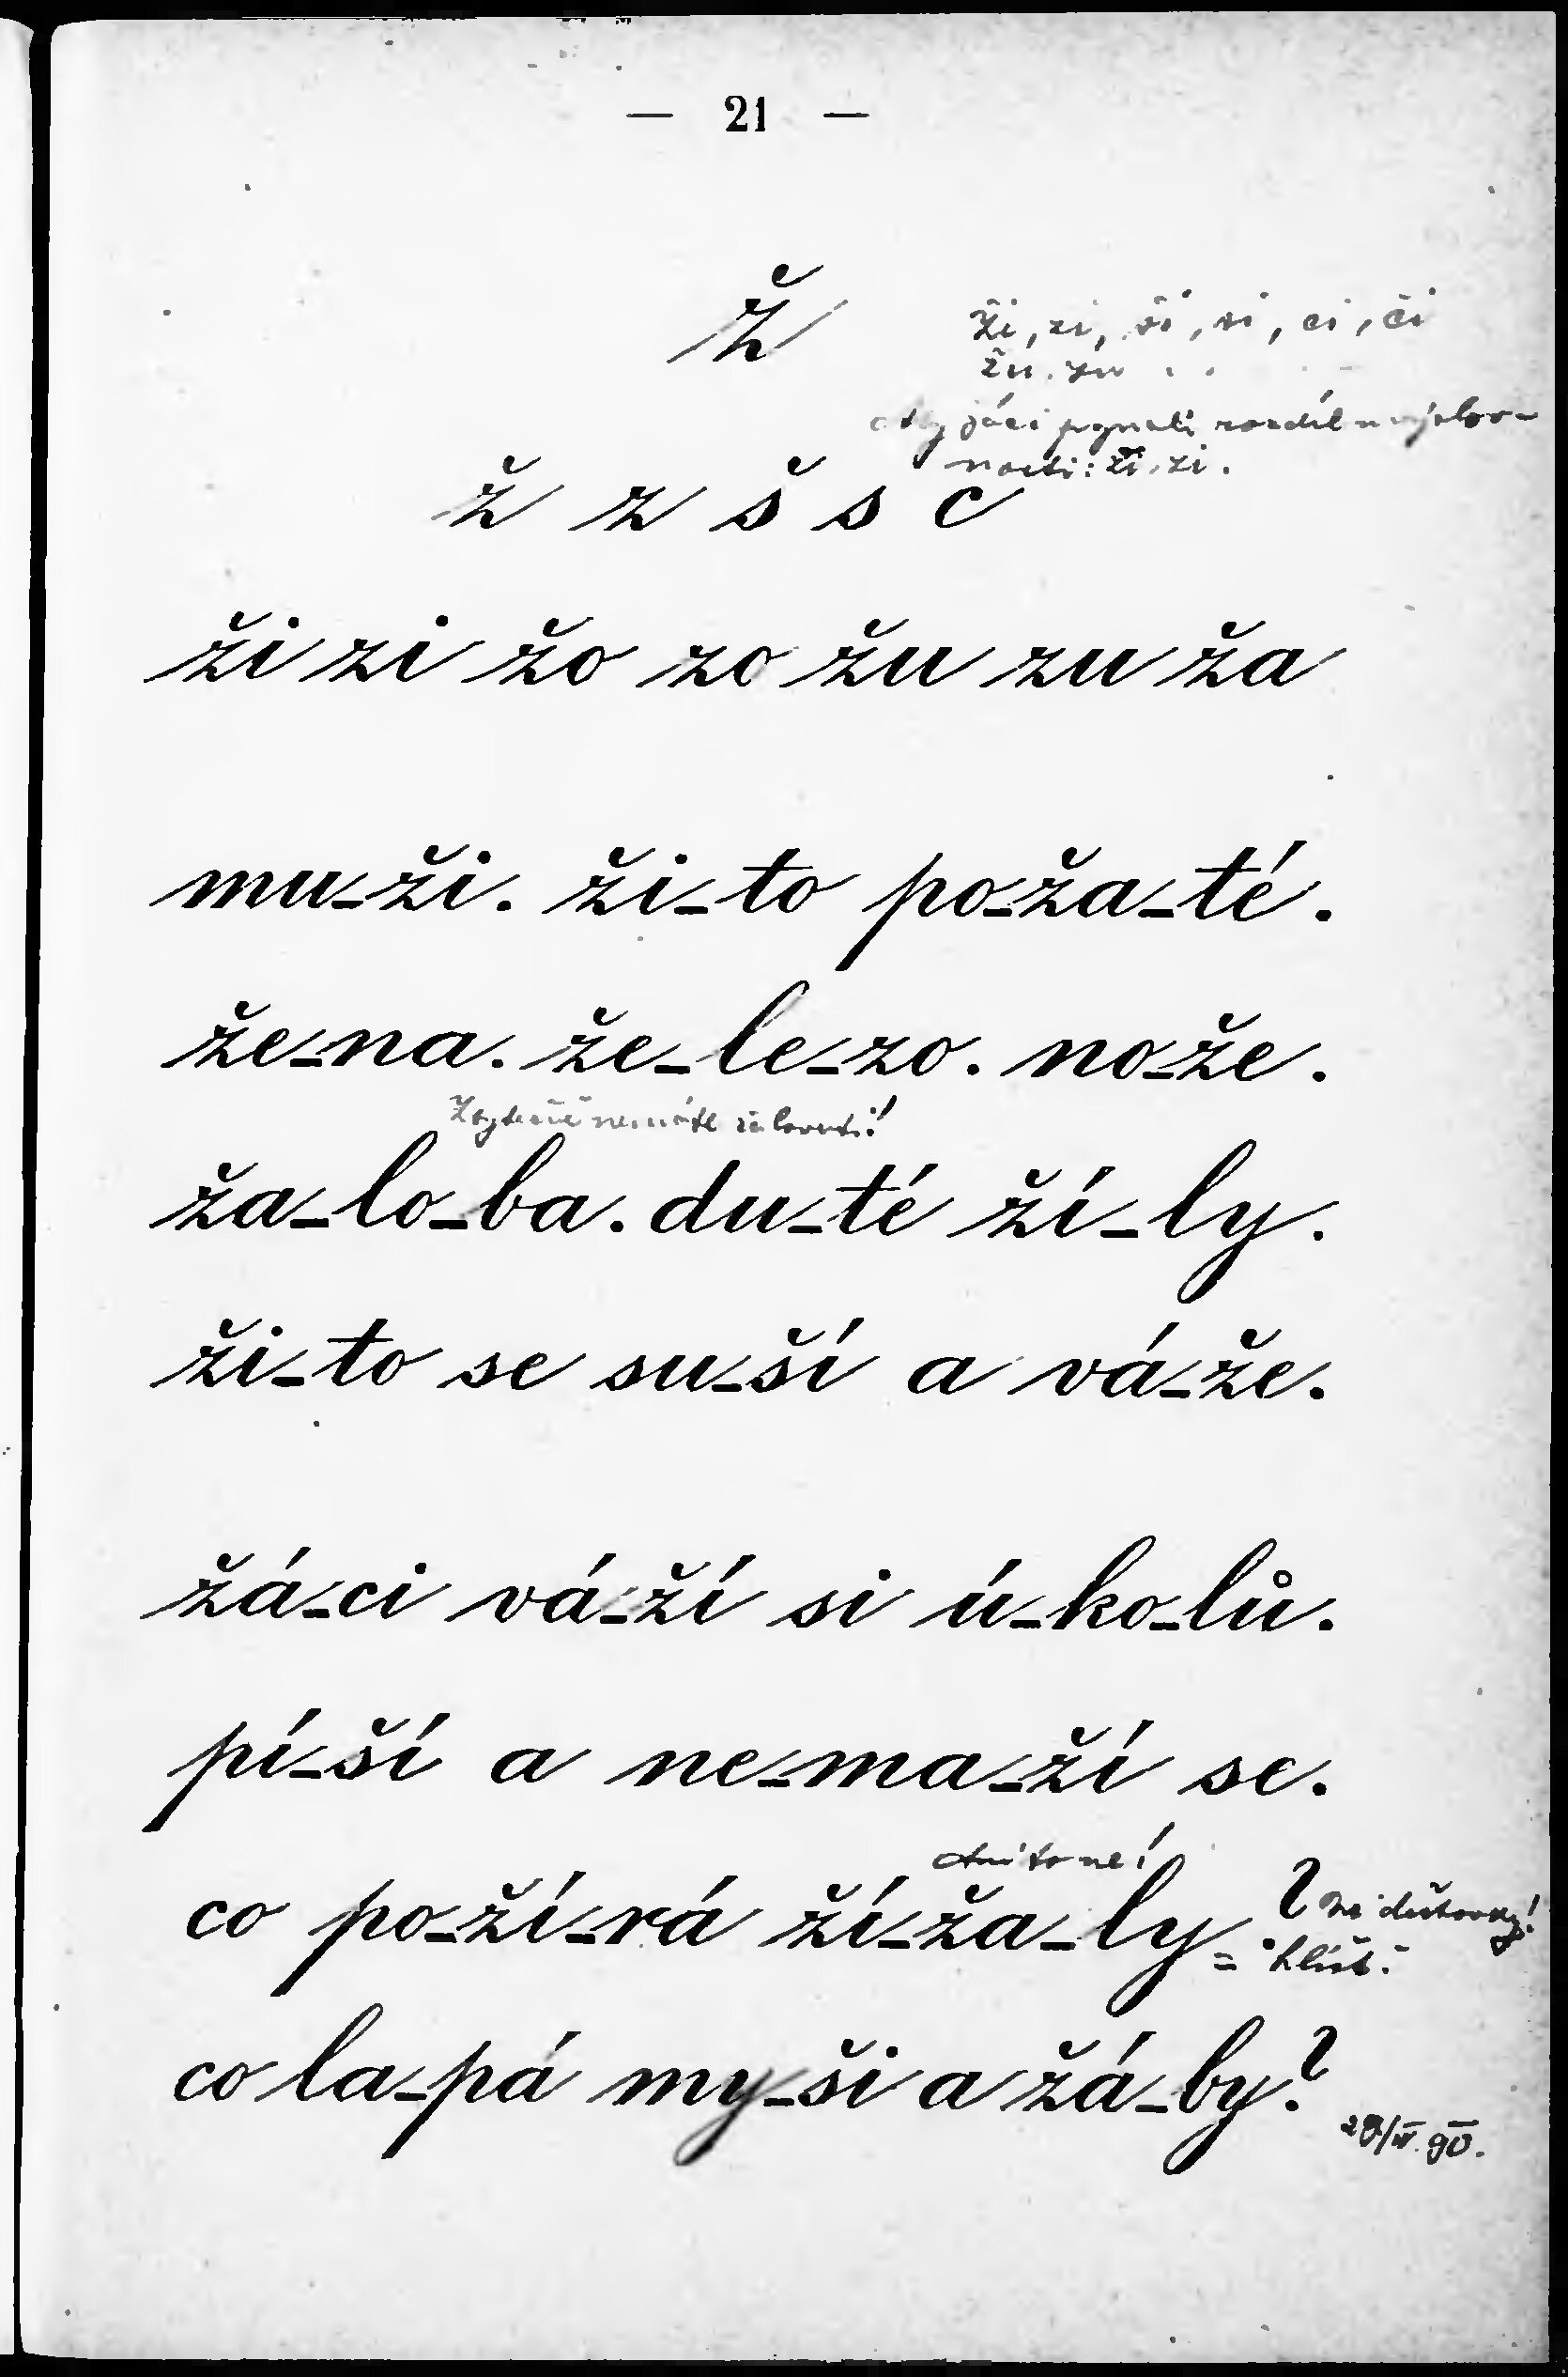 — 21 —
ž
ži, zi, ši, si, ci, či
žu, zu . .
Aby žáci poznali rozdíl u výslov-
nosti: ži, zi.
ž z š s c
ži zi žo zo žu zu ža
mu-ži. ži-to po-ža-té.
že-na. že-le-zo. no-že.
Zbytečně žalovati!
ža-lo-ba. du-té ží-ly.
ži-to se su-ší a vá-že.
žá-ci vá-ží si ú-ko-lů.
pí-ší a ne-ma-ží se.
Ani to ne!
co po-ží-rá ží-ža-ly?
co la-pá my-ši a žá-by?